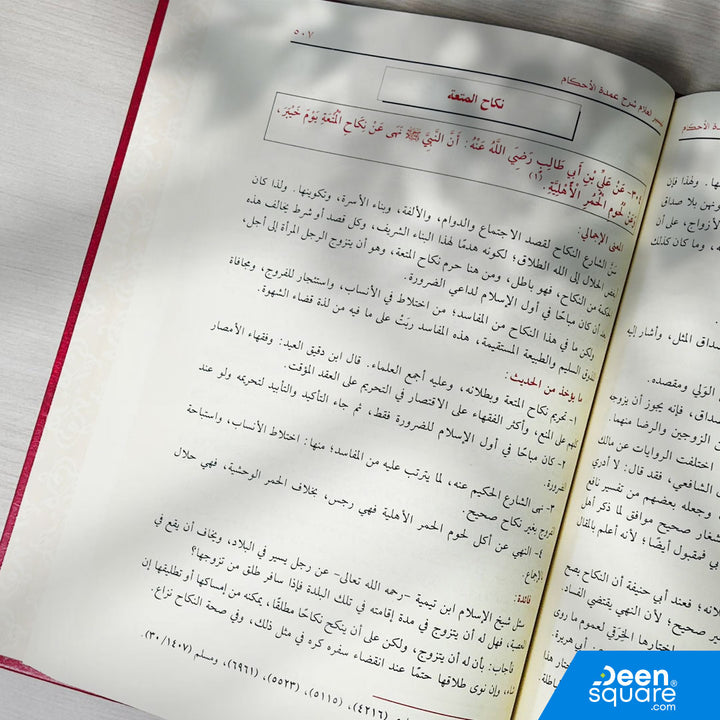 ٥٠٧
تيسير العلام شرح عمدة الأحكام
نكاح المتعة
٣٠٤- عَنْ عَلِيِّ بْنِ أَبِي طَالِبٍ رَضِيَ اللَّهُ عَنْهُ: أَنَّ النَّبِيَّ ﷺ نَهَى عَنْ نِكَاحِ الْمُتْعَةِ يَوْمَ خَيْبَرَ،
وَعَنْ لُحُومِ الْحُمُرِ الْأَهْلِيَّةِ.(١)
المعنى الإجمالي:
شرع الشارع النكاح لقصد الاجتماع والدوام، والألفة، وبناء الأسرة، وتكوينها. ولذا كان
بغض الحلال إلى الله الطلاق؛ لكونه هدمًا لهذا البناء الشريف، وكل قصد أو شرط يخالف هذه
الحكمة من النكاح، فهو باطل، ومن هنا حرم نكاح المتعة، وهو أن يتزوج الرجل المرأة إلى أجل،
بعد أن كان مباحًا في أول الإسلام لداعي الضرورة.
ولكن ما في هذا النكاح من المفاسد؛ من اختلاط في الأنساب، واستئجار للفروج، ومجافاة
للذوق السليم والطبيعة المستقيمة، هذه المفاسد ربَتْ على ما فيه من لذة قضاء الشهوة.
ما يؤخذ من الحديث:
١- تحريم نكاح المتعة وبطلانه، وعليه أجمع العلماء. قال ابن دقيق العيد: وفقهاء الأمصار
كلهم على المنع، وأكثر الفقهاء على الاقتصار في التحريم على العقد المؤقت.
٢- كان مباحًا في أول الإسلام للضرورة فقط، ثم جاء التأكيد والتأبيد لتحريمه ولو عند
الضرورة.
٣- نهى الشارع الحكيم عنه، لما يترتب عليه من المفاسد؛ منها: اختلاط الأنساب، واستباحة
الفروج بغير نكاح صحيح.
٤- النهي عن أكل لحوم الحمر الأهلية فهي رجس، بخلاف الحمر الوحشية، فهي حلال
بالإجماع.
فائدة:
سئل شيخ الإسلام ابن تيمية -رحمه الله تعالى- عن رجل يسير في البلاد، ويخاف أن يقع في
المعصية، فهل له أن يتزوج في مدة إقامته في تلك البلدة فإذا سافر طلق من تزوجها؟
فأجاب: بأن له أن يتزوج، ولكن على أن ينكح نكاحًا مطلقًا، يمكنه من إمساكها أو تطليقها إن
شاء، وإن نوى طلاقها حتمًا عند انقضاء سفره كره في مثل ذلك، وفي صحة النكاح نزاع.
(٤٢١٦)، (٥١١٥)، (٥٥٢٣)، (٦٩٦١)، ومسلم (١٤٠٧/٣٠).
الأحكام
ها. ولهذا فإن
ونهن بلا صداق
الأزواج، على أن
، وما كان كذلك
صداق المثل، وأشار إليه
الوَلي ومقصده.
صداق، فإنه يجوز أن يزوجه
ت الزوجين والرضا منهما.
اختلفت الروايات عن مالك
الشافعي، فقد قال: لا أدري
وجعله بعضهم من تفسير نافع
شغار صحيح موافق لما ذكر أهل
بي فمقبول أيضًا؛ لأنه أعلم بالمقال
لانه؛ فعند أبي حنيفة أن النكاح يصح
ير صحيح؛ لأن النهي يقتضي الفساد.
اختارها الخِرَقي لعموم ما روى
Deen
square®
.com